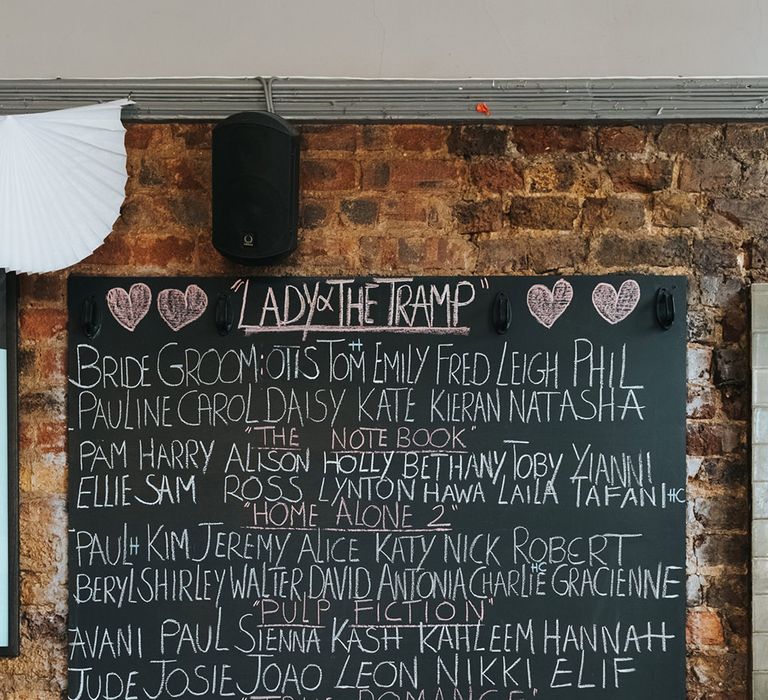 "LADY & THE TRAMP"
BRIDE GROOM: OTIS TOM H EMILY FRED LEIGH PHIL
PAULINE CAROL DAISY KATE KIERAN NATASHA
"THE NOTE BOOK"
PAM HARRY ALISON HOLLY BETHANY TOBY YIANNI
ELLIE SAM ROSS LYNTON HAWA LAILA TAFANI HC
"HOME ALONE 2"
PAUL H KIM JEREMY ALICE KATY NICK ROBERT
BERYL SHIRLEY WALTER DAVID ANTONIA CHARLIE HC GRACIENNE
"PULP FICTION"
AVANI PAUL SIENNA KASH KATHLEEM HANNAH
JUDE JOSIE JOAO LEON NIKKI ELIF
ROMANCE"